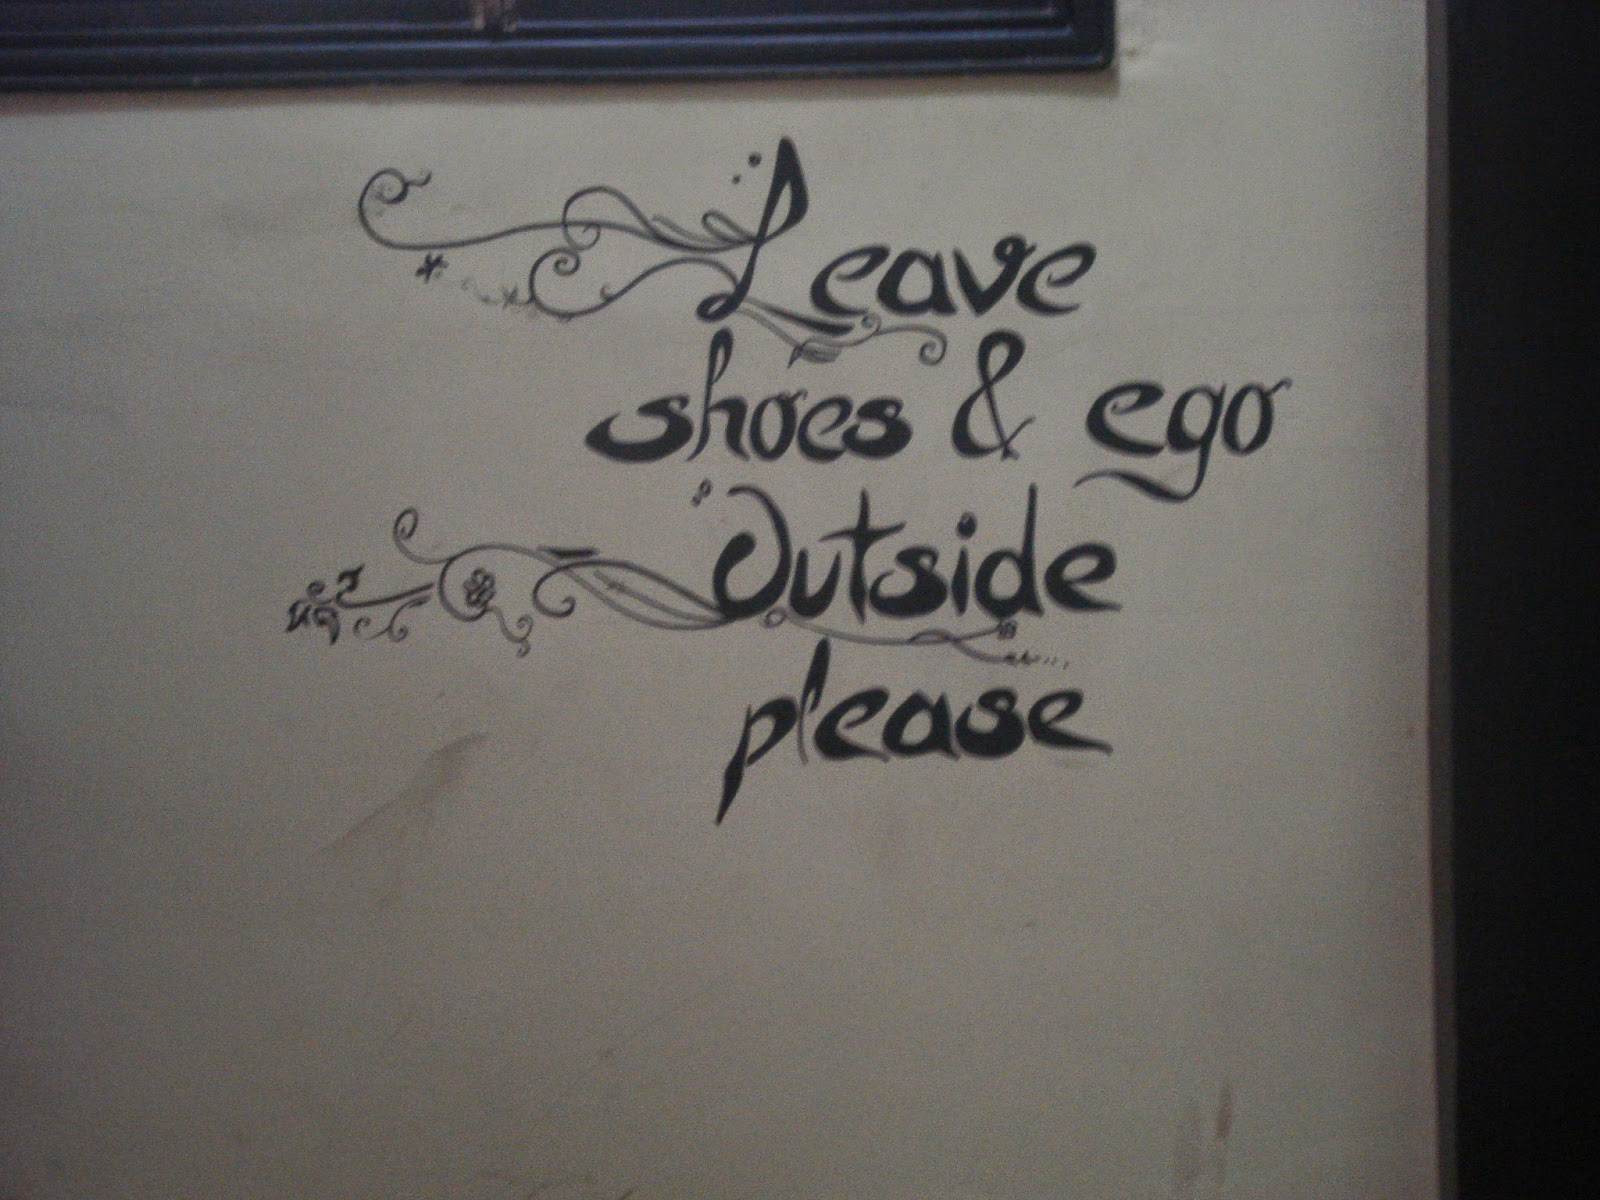 Leave
shoes & ego
Outside
please